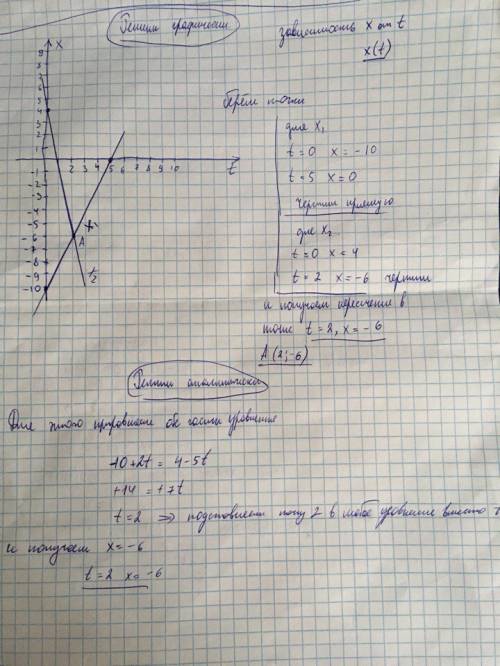 Решим графически
зависимость x от t
x(t)
Берём точки
для x₁
t=0 x=-10
t=5 x=0
Чертим прямую
для x₂
t=0 x=4
t=2 x=-6 чертим
и получаем пересечение в
точке t=2, x=-6
A(2;-6)
x
9
8
7
5
4
3
2
1
2 3 4 5 6 7 8 9 10
t
-1
-2
-3
-4
-5
-6
-7
-8
-9
-10
A
Решим аналитически
Для этого приравняем обе части уравнения
-10+2t=4-5t
+14=+7t
t=2 => подставляем t=2 в любое уравнение вместо t
и получаем x=-6
t=2 x=-6